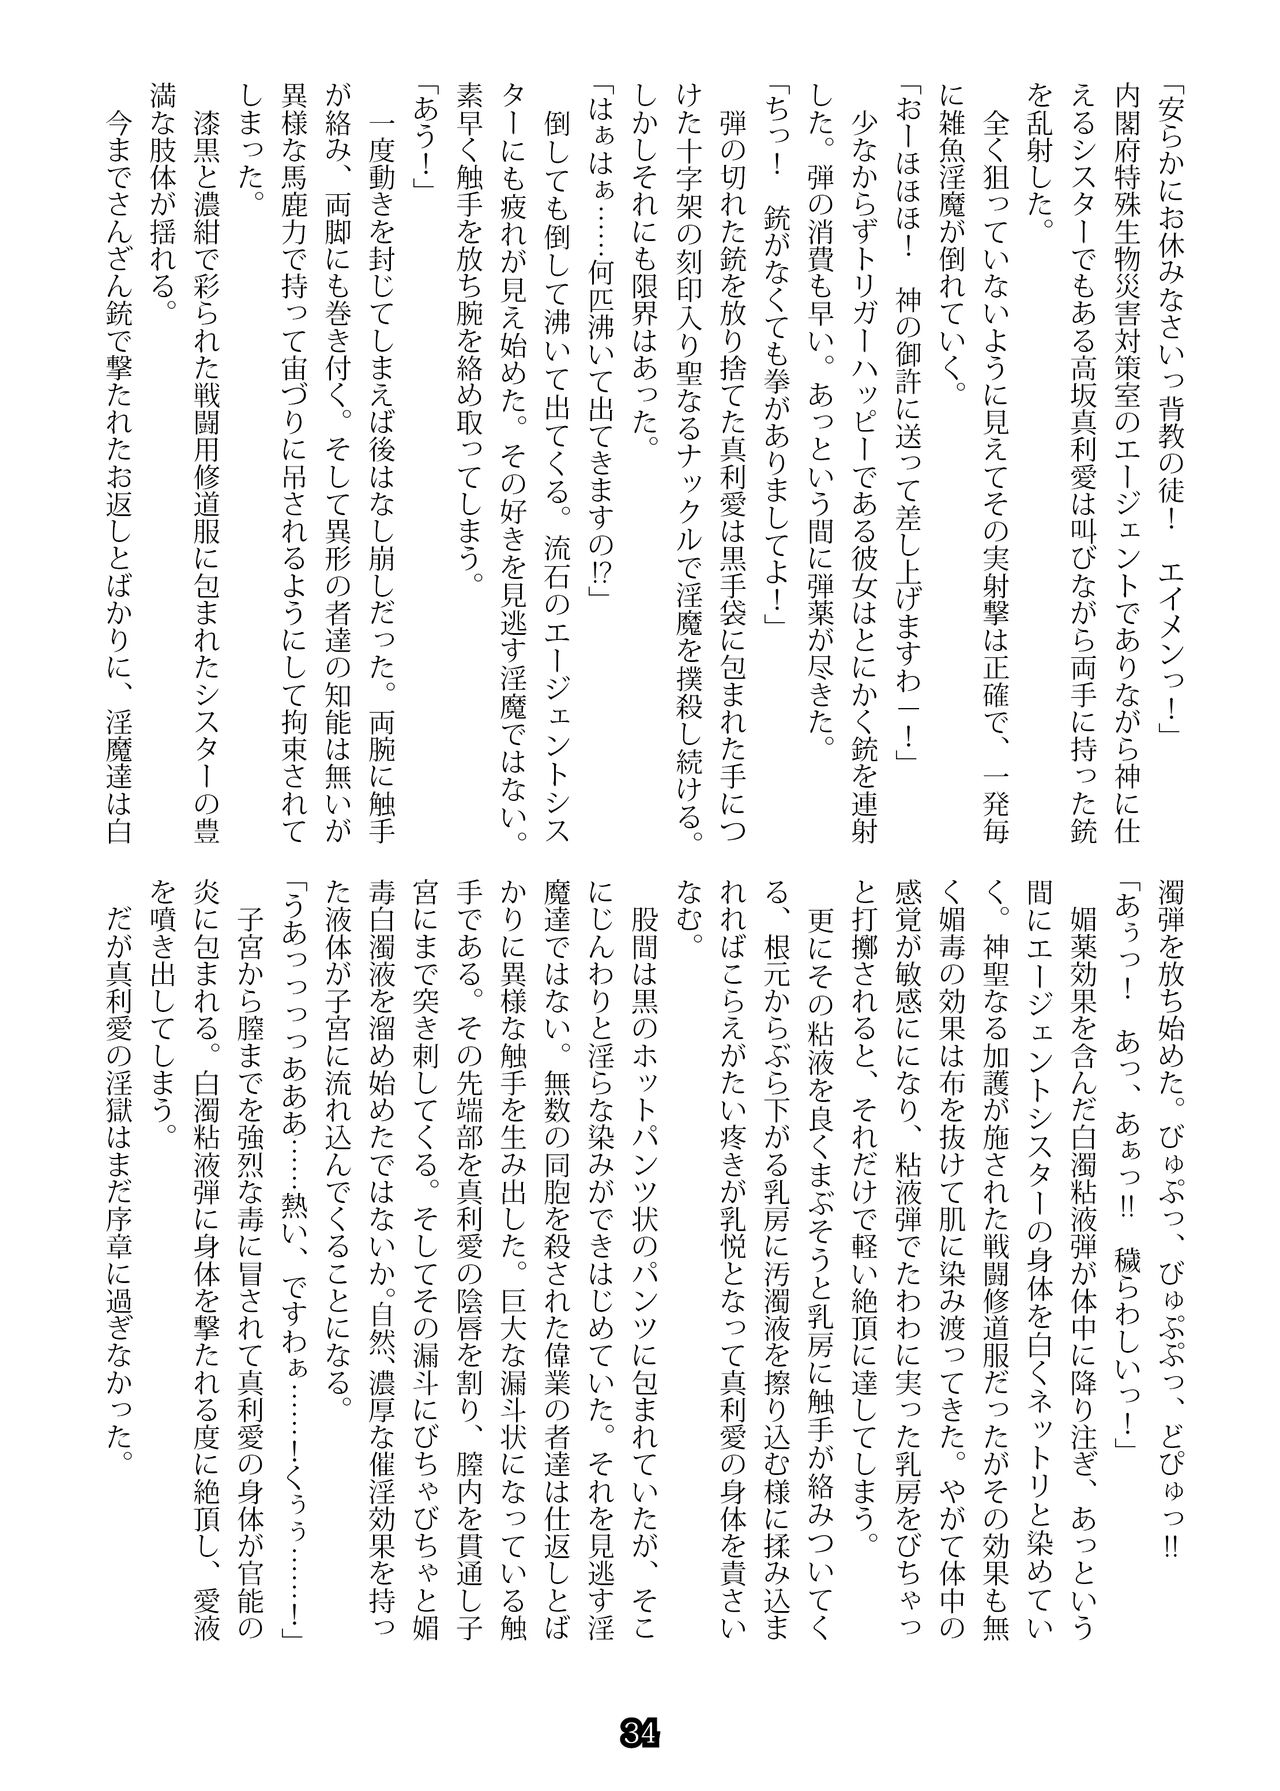 「安らかにお休みなさいっ背教の徒！　エイメンっ！」
内閣府特殊生物災害対策室のエージェントでありながら神に仕
えるシスターでもある高坂真利愛は叫びながら両手に持った銃
を乱射した。
　全く狙っていないように見えてその実射撃は正確で、一発毎
に雑魚淫魔が倒れていく。
「おーほほほ！　神の御許に送って差し上げますわ―！」
　少なからずトリガーハッピーである彼女はとにかく銃を連射
した。弾の消費も早い。あっという間に弾薬が尽きた。
「ちっ！　銃がなくても拳がありましてよ！」
　弾の切れた銃を放り捨てた真利愛は黒手袋に包まれた手につ
けた十字架の刻印入り聖なるナックルで淫魔を撲殺し続ける。
しかしそれにも限界はあった。
「はぁはぁ……何匹沸いて出てきますの!?」
　倒しても倒して沸いて出てくる。流石のエージェントシス
ターにも疲れが見え始めた。その好きを見逃す淫魔ではない。
素早く触手を放ち腕を絡め取ってしまう。
「あう！」
　一度動きを封じてしまえば後はなし崩しだった。両腕に触手
が絡み、両脚にも巻き付く。そして異形の者達の知能は無いが
異様な馬鹿力で持って宙づりに吊されるようにして拘束されて
しまった。
　漆黒と濃紺で彩られた戦闘用修道服に包まれたシスターの豊
満な肢体が揺れる。
　今までさんざん銃で撃たれたお返しとばかりに、淫魔達は白
濁弾を放ち始めた。びゅぷっ、びゅぷぷっ、どぴゅっ!!
「あぅっ！　あっ、あぁっ!!　穢らわしいっ！」
　媚薬効果を含んだ白濁粘液弾が体中に降り注ぎ、あっという
間にエージェントシスターの身体を白くネットリと染めてい
く。神聖なる加護が施された戦闘修道服だったがその効果も無
く媚毒の効果は布を抜けて肌に染み渡ってきた。やがて体中の
感覚が敏感にになり、粘液弾でたわわに実った乳房をびちゃっ
と打擲されると、それだけで軽い絶頂に達してしまう。
　更にその粘液を良くまぶそうと乳房に触手が絡みついてく
る、根元からぶら下がる乳房に汚濁液を擦り込む様に揉み込ま
れればこらえがたい疼きが乳悦となって真利愛の身体を責さい
なむ。
　股間は黒のホットパンツ状のパンツに包まれていたが、そこ
にじんわりと淫らな染みができはじめていた。それを見逃す淫
魔達ではない。無数の同胞を殺された偉業の者達は仕返しとば
かりに異様な触手を生み出した。巨大な漏斗状になっている触
手である。その先端部を真利愛の陰唇を割り、膣内を貫通し子
宮にまで突き刺してくる。そしてその漏斗にびちゃびちゃと媚
毒白濁液を溜め始めたではないか。自然、濃厚な催淫効果を持っ
た液体が子宮に流れ込んでくることになる。
「うあっっっっあああ……熱い、ですわぁ……！くぅぅ……！」
　子宮から膣までを強烈な毒に冒されて真利愛の身体が官能の
炎に包まれる。白濁粘液弾に身体を撃たれる度に絶頂し、愛液
を噴き出してしまう。
　だが真利愛の淫獄はまだ序章に過ぎなかった。
34